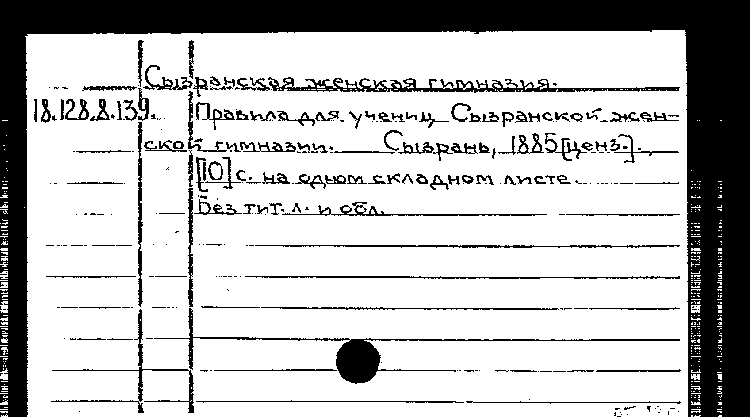 Сызранская женская гимназия.
18.128.8.139. Правила для учениц Сызранской жен-
ской гимназии. Сызрань, 1885 [ценз.].
[10] с. на одном складном листе.
Без тит. л. и обл.